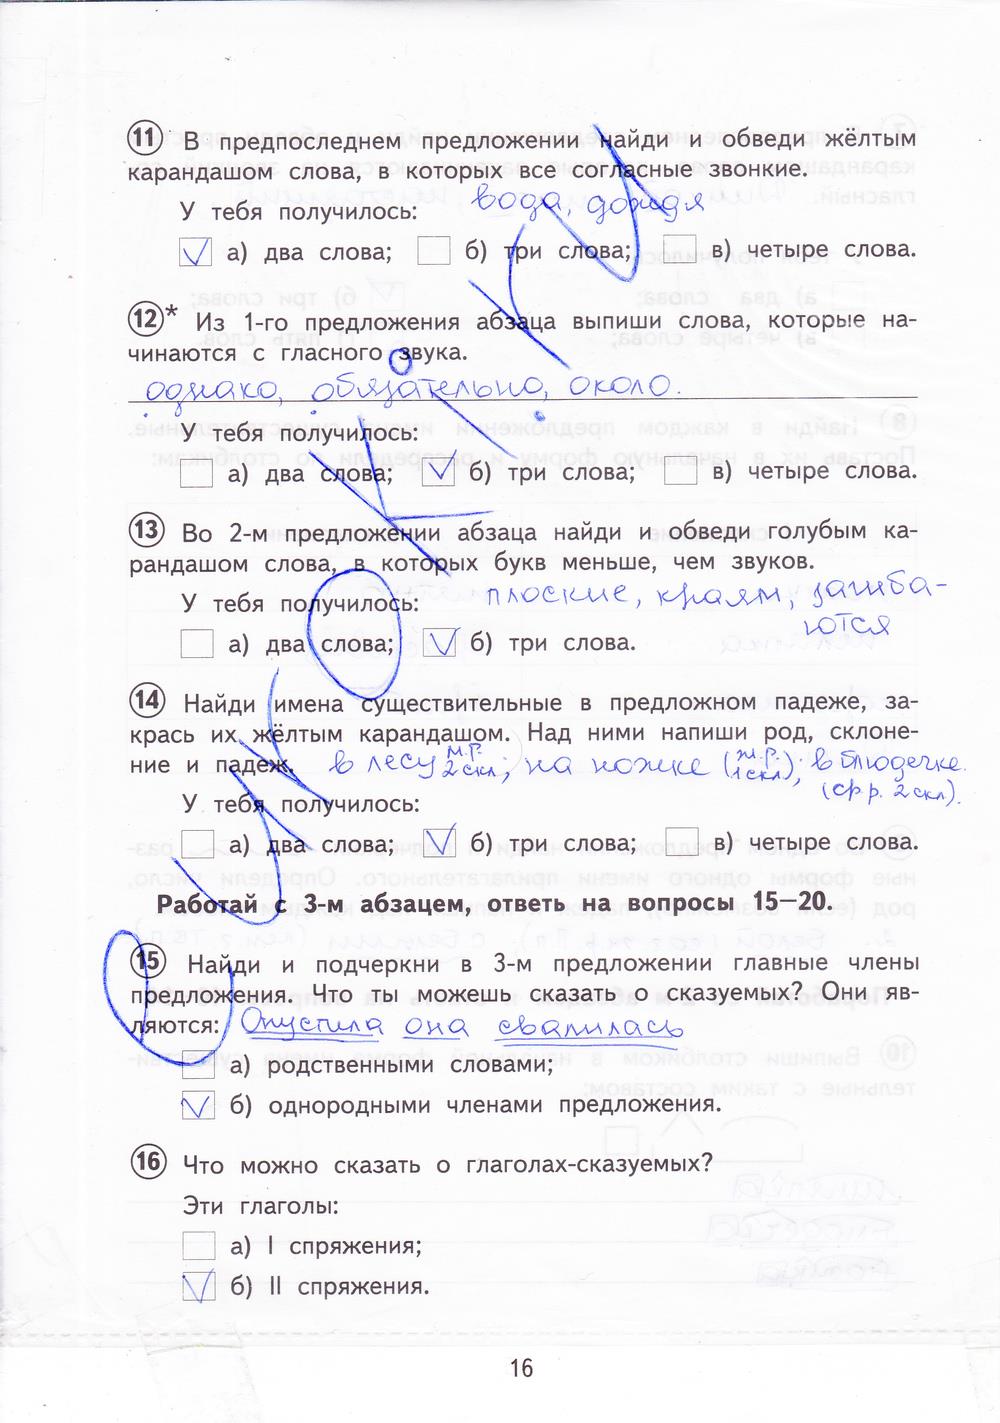 11 В предпоследнем предложении найди и обведи жёлтым
карандашом слова, в которых все согласные звонкие.
У тебя получилось: вода, дождя
а) два слова; б) три слова; в) четыре слова.
12* Из 1-го предложения абзаца выпиши слова, которые на-
чинаются с гласного звука.
однако, обязательно, около.
У тебя получилось:
а) два слова; б) три слова; в) четыре слова.
13 Во 2-м предложении абзаца найди и обведи голубым ка-
рандашом слова, в которых букв меньше, чем звуков.
У тебя получилось: плоские, краям, загиба-
ются
а) два слова; б) три слова.
14 Найди имена существительные в предложном падеже, за-
крась их жёлтым карандашом. Над ними напиши род, склоне-
ние и падеж. в лесу м.р. 2 скл.; на ножке (ж.р. 1 скл); в блюдечке.
(ср р. 2 скл).
У тебя получилось:
а) два слова; б) три слова; в) четыре слова.
Работай с 3-м абзацем, ответь на вопросы 15—20.
15 Найди и подчеркни в 3-м предложении главные члены
предложения. Что ты можешь сказать о сказуемых? Они яв-
ляются: Опустила она свалилась
а) родственными словами;
б) однородными членами предложения.
16 Что можно сказать о глаголах-сказуемых?
Эти глаголы:
а) I спряжения;
б) II спряжения.
16